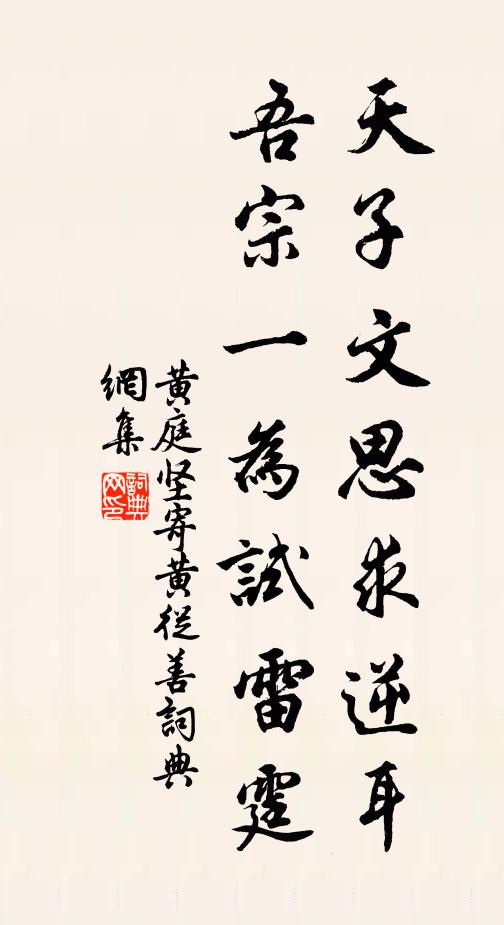 天子文思求逆耳
吾宗一為試雷霆
黃庭坚寄黃從善詞典
網集
詞典
网印